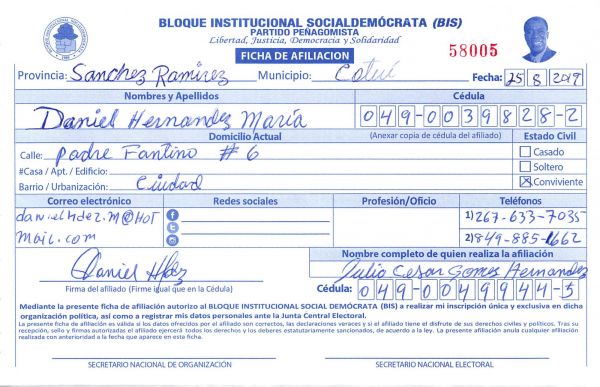 BLOQUE INSTITUCIONAL SOCIALDEMÓCRATA (BIS)
PARTIDO PEÑAGOMISTA
Libertad, Justicia, Democracia y Solidaridad
FICHA DE AFILIACION
58005
Provincia: Sanchez Ramirez Municipio: Cotuí Fecha: 25 8 2019
Nombres y Apellidos Cédula
Daniel Hernandez María 049-0039828-2
Domicilio Actual (Anexar copia de cédula del afiliado) Estado Civil
Calle: Padre Fantino # 6 Casado
#Casa / Apt. / Edificio: Soltero
Barrio / Urbanización: Ciudad Conviviente
Correo electrónico Redes sociales Profesión/Oficio Teléfonos
daniel Hdez.m@HoT 1) 267-633-7035
mail.com 2) 849-885-1662
Nombre completo de quien realiza la afiliación
Daniel Hdez Julio Cesar Gomes Hernandez
Firma del afiliado (Firme igual que en la Cédula) Cédula: 049-0049944-5
Mediante la presente ficha de afiliación autorizo al BLOQUE INSTITUCIONAL SOCIAL DEMÓCRATA (BIS) a realizar mi inscripción única y exclusiva en dicha
organización política, así como a registrar mis datos personales ante la Junta Central Electoral.
La presente ficha de afiliación es válida si los datos ofrecidos por el afiliado son correctos, las declaraciones veraces y si el afiliado tiene el disfrute de sus derechos civiles y políticos. Tras su
recepción, sello y firmas autorizadas el afiliado ejercerá todos los derechos y los deberes estatutariamente sancionados, de acuerdo a la ley. La presente afiliación anula cualquier afiliación
realizada con anterioridad a la fecha que aparece en esta ficha.
SECRETARIO NACIONAL DE ORGANIZACIÓN SECRETARIO NACIONAL ELECTORAL